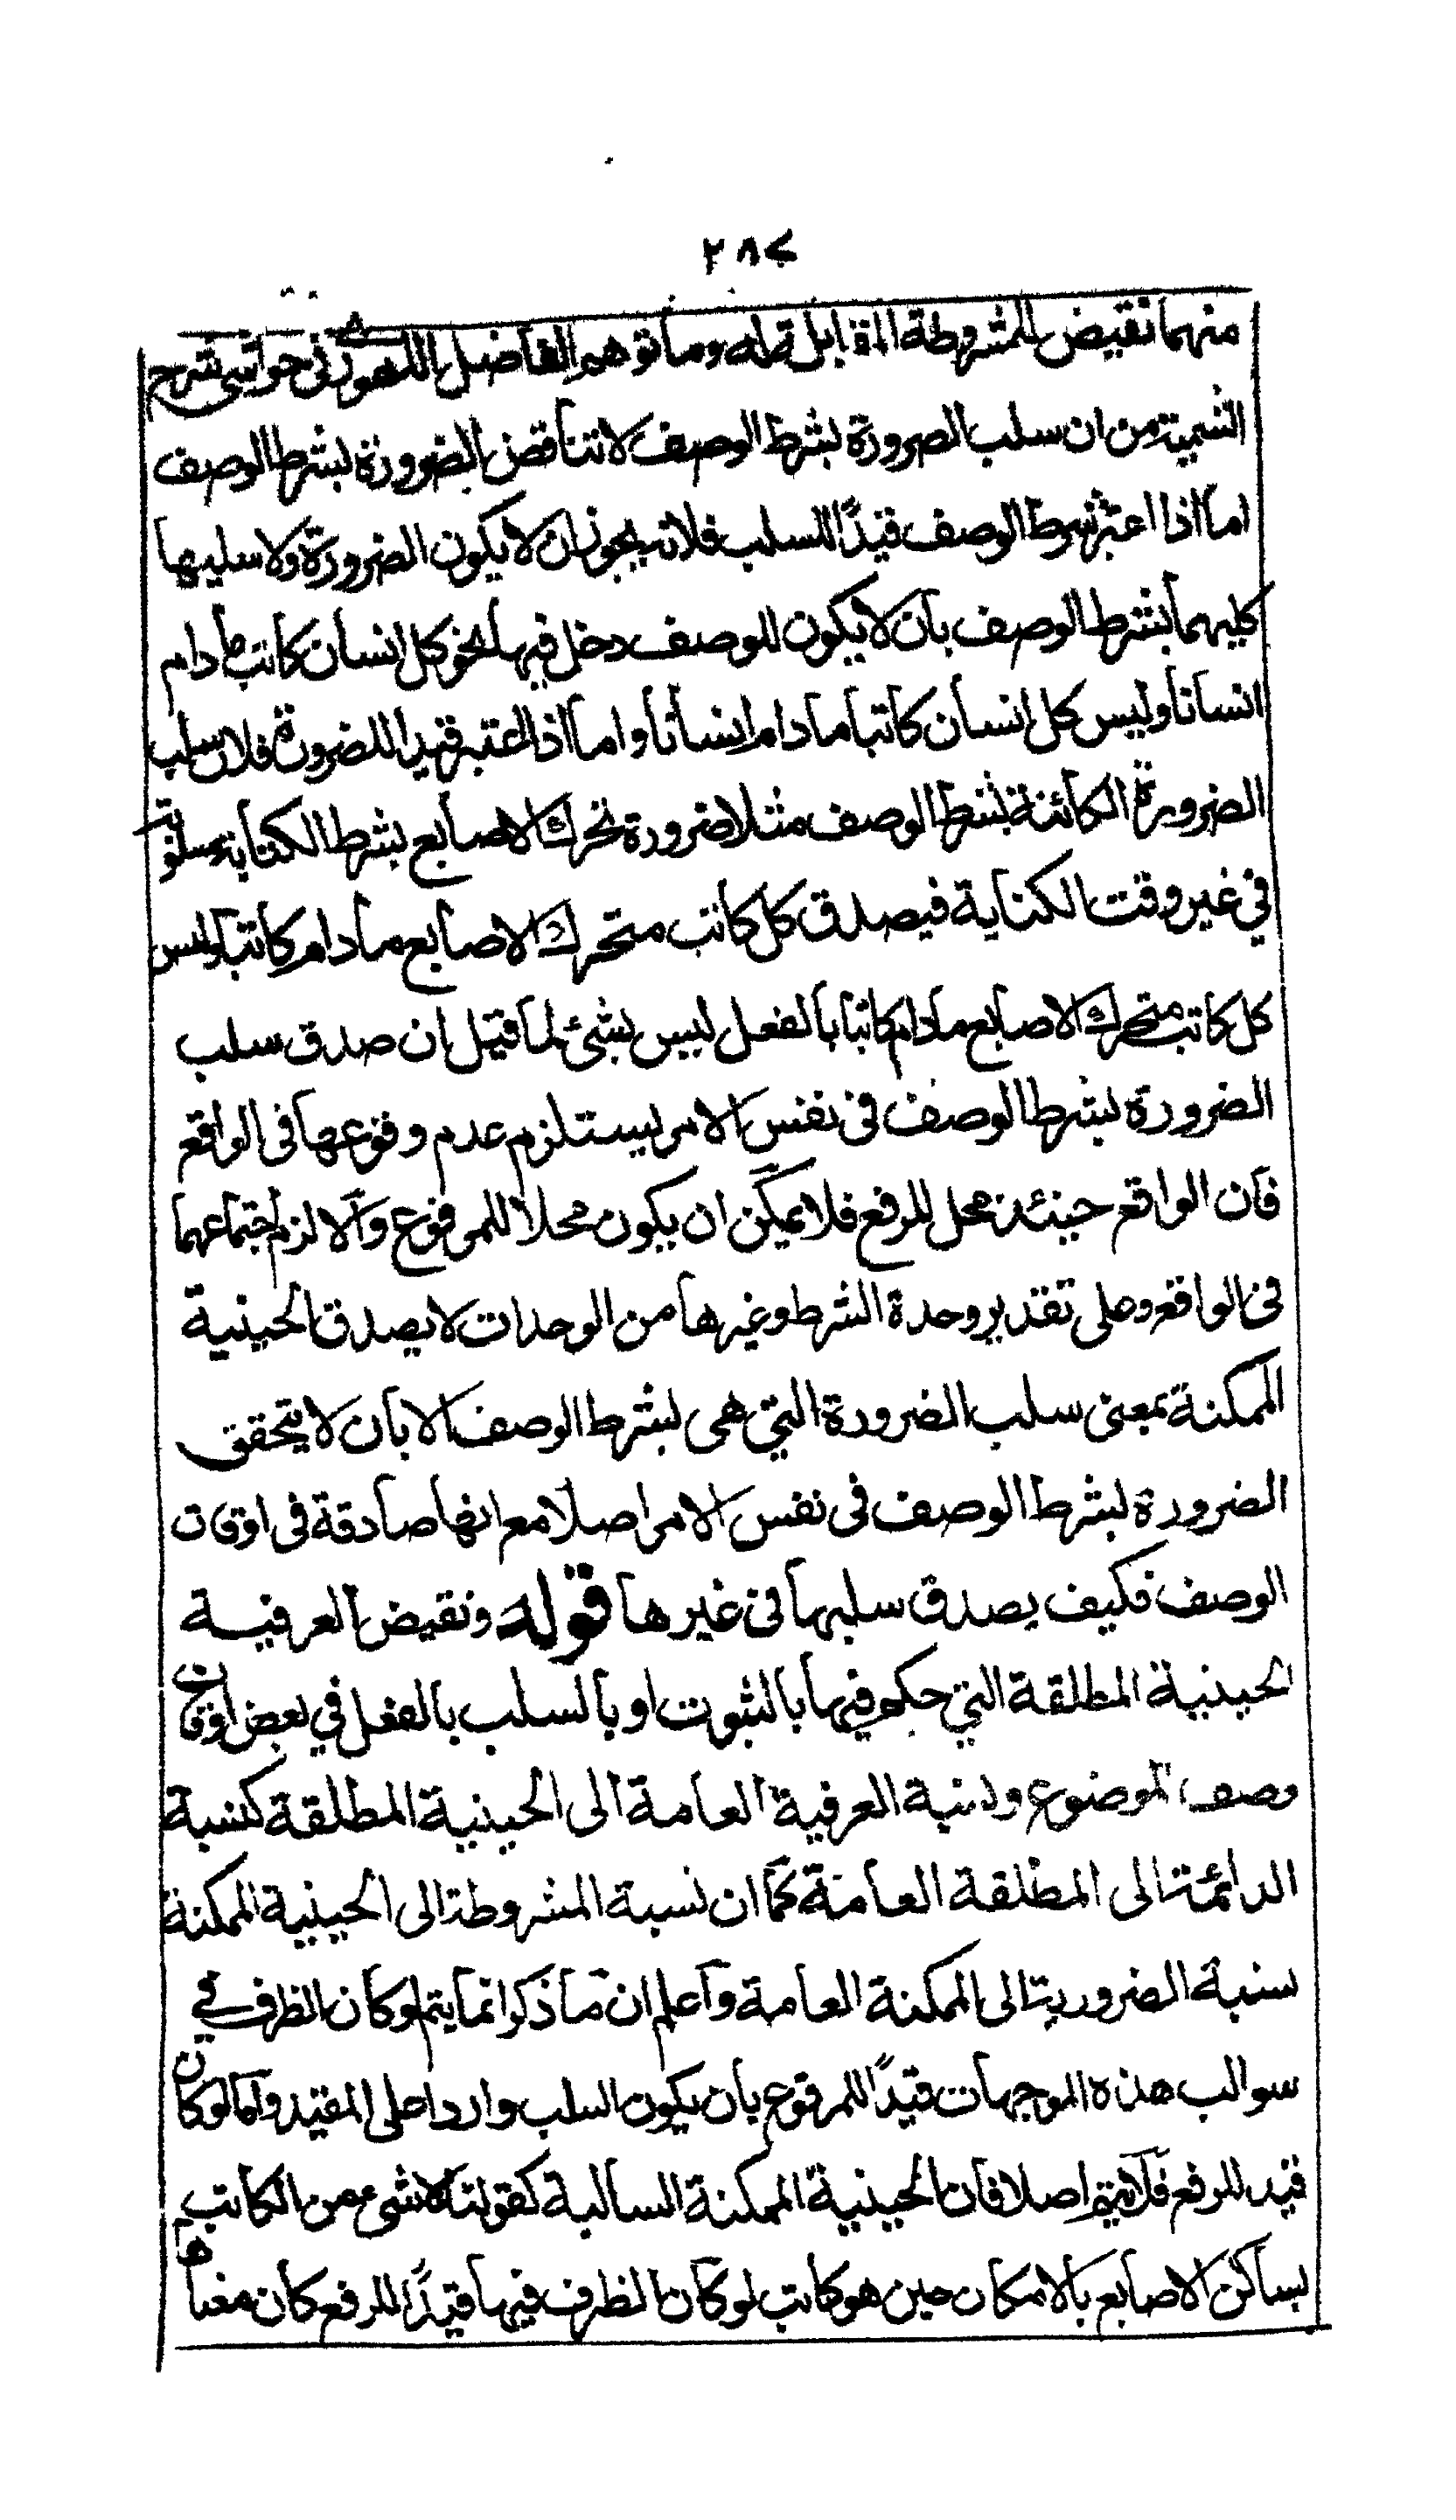 ٢٨٧
منهما نقيض للمشروطة المقابل له وما توهم الفاضل اللاهوري في حواشي شرح
الشمسية من ان سلب الضرورة بشرط الوصف لا تناقض الضرورة بشرط الوصف
اما اذا اعتبر شرط الوصف قيدًا للسلب فلانه يجوز ان لا يكون الضرورة ولا سلبها
كليهما بشرط الوصف بان لا يكون للوصف دخل فيها نحو كل انسان كاتب ما دام
انسانا وليس كل انسان كاتبا ما دام انسانا واما اذا اعتبر قيدا للضرورة فلان سلب
الضرورة الكائنة بشرط الوصف مثلا ضرورة تحرك الاصابع بشرط الكتابة مسلوبة
في غير وقت الكتابة فيصدق كل كاتب متحرك الاصابع ما دام كاتبا وليس
كل كاتب متحرك الاصابع ما دام كاتبا بالفعل ليس بشئ لما قيل ان صدق سلب
الضرورة بشرط الوصف فى نفس الامر يستلزم عدم وقوعها فى الواقع
فان الواقع حينئذ محل للرفع فلا يمكن ان يكون محلا للمرفوع والا لزم اجتماعهما
فى الواقع وعلى تقدير وحدة الشرط وغيرها من الوحدات لا يصدق الحينية
الممكنة بمعنى سلب الضرورة التي هى بشرط الوصف الا بان لا يتحقق
الضرورة بشرط الوصف فى نفس الامر اصلا مع انها صادقة فى اوقات
الوصف فكيف يصدق سلبها فى غيرها قوله ونقيض العرفية
الحينية المطلقة التي حكم فيها بالثبوت او بالسلب بالفعل في بعض اوقات
وصف الموضوع ونسبة العرفية العامة الى الحينية المطلقة كنسبة
الدائمة الى المطلقة العامة كما ان نسبة المشروطة الى الحينية الممكنة
نسبة الضرورية الى الممكنة العامة واعلم ان ما ذكر انما يتم لو كان الظرف في
سوالب هذه الموجهات قيدًا للمرفوع بان يكون السلب واردا على المقيد واما لو كان
قيد للرفع فلا يتم اصلا فان الحينية الممكنة السالبة كقولنا لا شئ من الكاتب
بساكن الاصابع بالامكان حين هو كاتب لو كان الظرف فيها قيدًا للرفع كان معناها